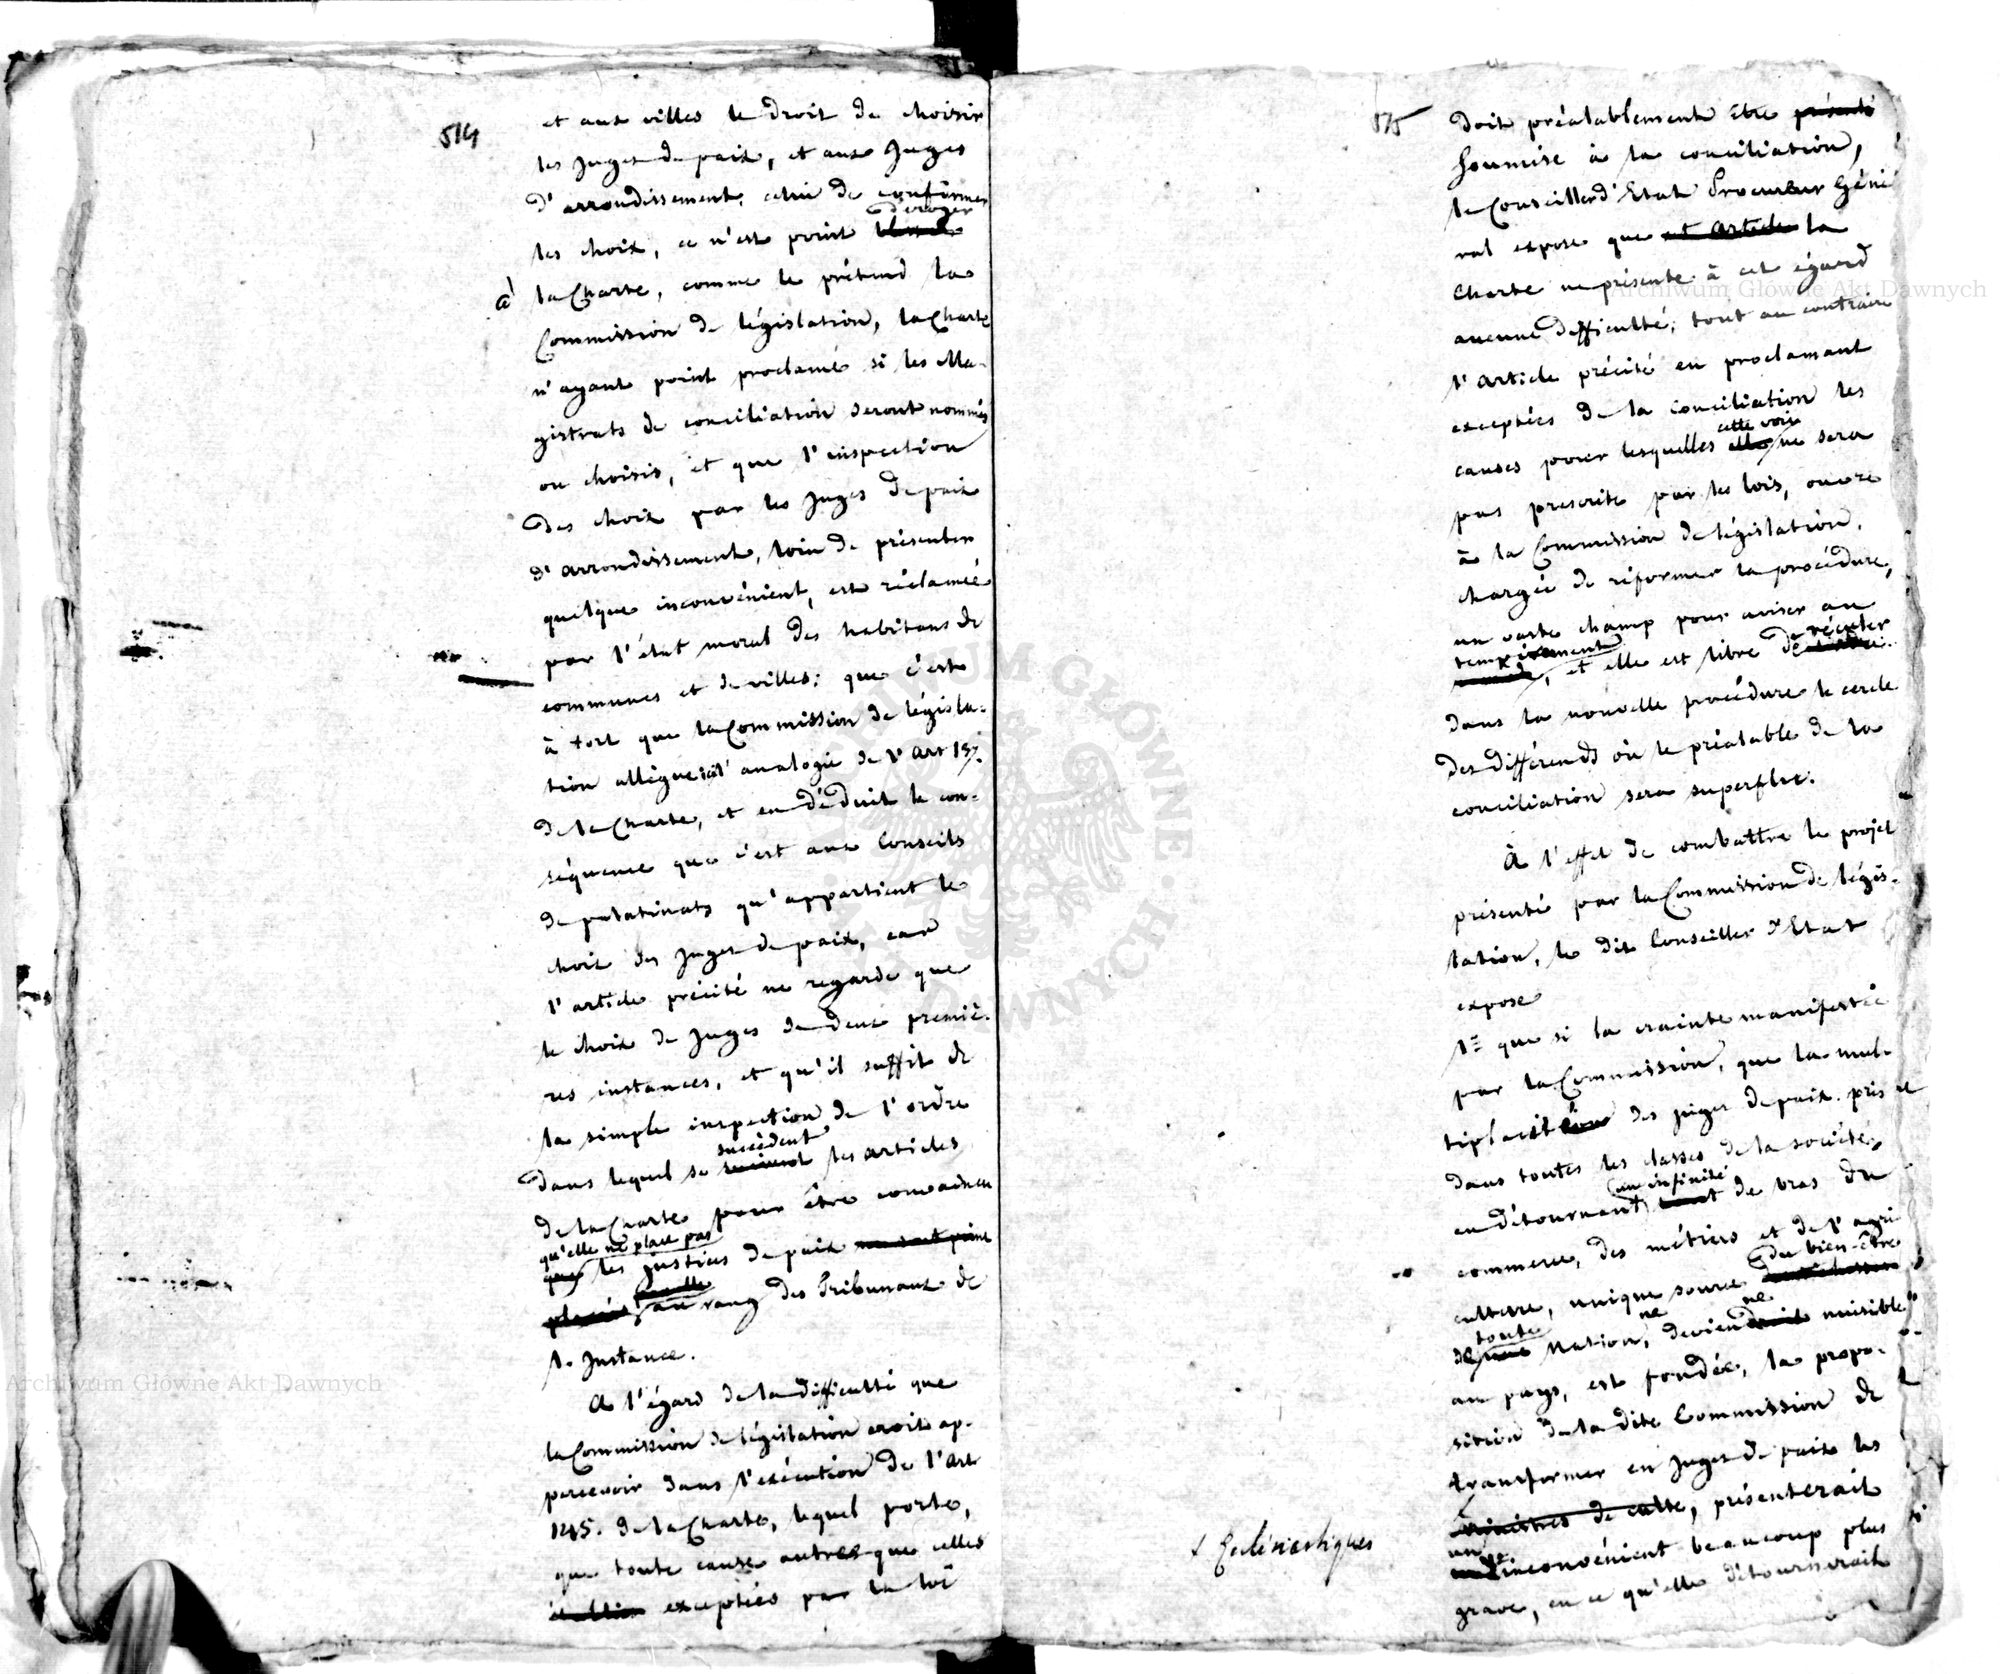 514
et aux villes le droit de choisir
les Juges de paix, et aux Juges
d'arrondissement, celui de confirmer
les choix, ce n'est point deroger
à la Charte, comme le prétend la
Commission de législation, la Charte
n'ayant point proclamé si les Ma-
gistrats de conciliation seront nommés
ou choisis, et que l'inspection
des choix par les Juges de paix
d'arrondissement, loin de présenter
quelque inconvénient, est réclamée
par l'état moral des habitans de
communes et de villes; que c'est
à tort que la Commission de législa-
tion allègue l'analogie de l'Art 137.
de la Charte, et en déduit la con-
séquence que c'est aux Conseils
de palatinats qu'appartient le
choix des Juges de paix, car
l'article précité ne regarde que
le choix de Juges de deux premiè-
res instances, et qu'il suffit de
la simple inspection de l'ordre
dans lequel se succèdent les articles
de la Charte pour être convaincu
qu'elle ne place pas
les justices de paix ne sont point
placées au rang des Tribunaux de
1. Instance.
A l'égard de la difficulté que
la Commission de législation croit ap-
percevoir dans l'exécution de l'Art
145. de la Charte, lequel porte,
que toute cause autre que celles
exceptées par la loi
515
doit préalablement être présenté
soumise à la conciliation,
le Conseiller d'Etat Procureur Géné
ral expose que cet article la
Charte ne présente à cet égard
aucune difficulté; tout au contraire
l'article précité en proclamant
exceptées de la conciliation les
cette voie
causes pour lesquelles elle ne sera
pas prescrite par les lois, ouvre
à la Commission de législation,
chargée de réformer la procédure,
un vaste champ pour aviser au
tempérament, et elle est libre de
dans la nouvelle procédure le cercle
des différends où le préalable de la
conciliation sera superflu.
A l'effet de combattre le projet
présenté par la Commission de légis-
lation, le dit Conseiller d'Etat
expose
1º que si la crainte manifestée
par la Commission, que la mul-
des juges de paix pris
dans toutes les classes de la société,
une infinité
en détournant tant de bras du
commerce, des métiers et de l'agri
du bien-être
culture, unique source
toute ne ne
de Nation, devien nuisible
au pays, est fondée, la propo-
sition de la dite Commission de
transformer en Juges de paix les
ministres de culte, présenterait
+ Ecclésiastiques
un inconvénient beaucoup plus
grave, en ce qu'elle détournerait
Archiwum Główne Akt Dawnych
Archiwum Główne Akt Dawnych
ARCHIWUM GŁÓWNE AKT DAWNYCH